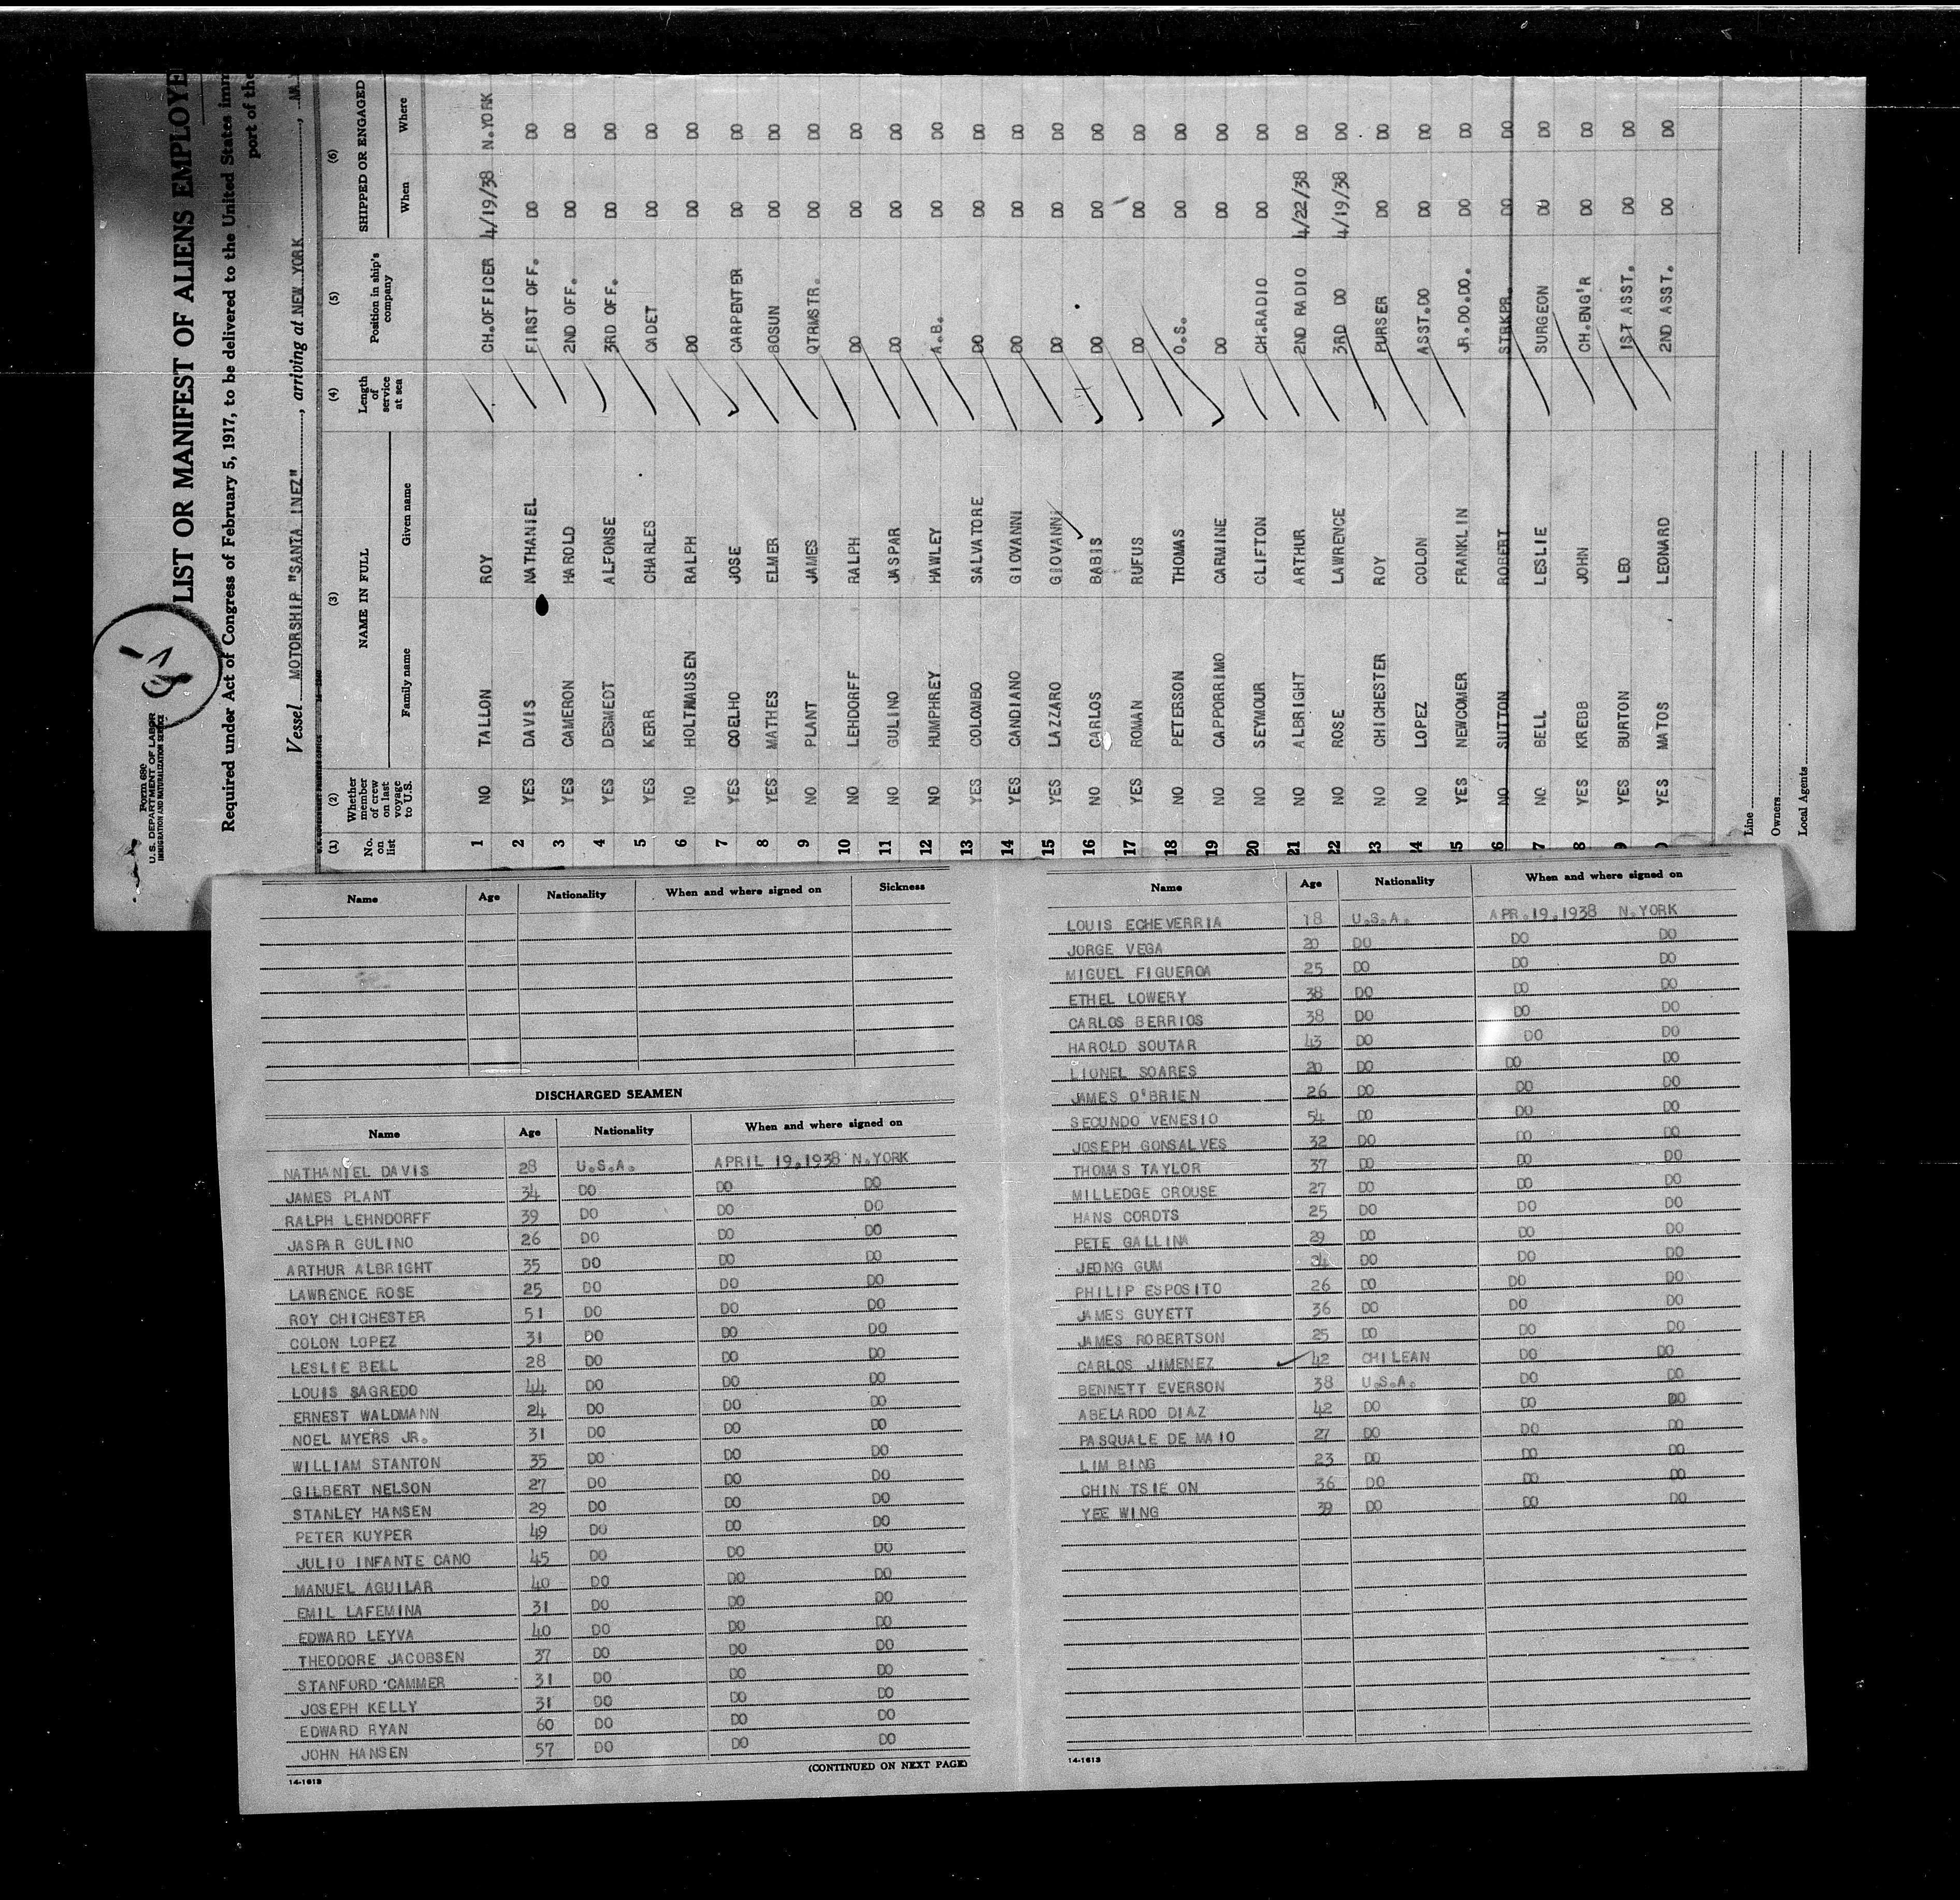 Form 680
U.S. DEPARTMENT OF LABOR
IMMIGRATION AND NATURALIZATION SERVICE
LIST OR MANIFEST OF ALIENS EMPLOYE
Required under Act of Congress of February 5, 1917, to be delivered to the United States imm
port of the
Vessel MOTORSHIP "SANTA INEZ", arriving at NEW YORK,
(1) (2) (3) (4) (5) (6)
No. on list Whether member of crew on last voyage to U.S. NAME IN FULL Length of service at sea Position in ship's company SHIPPED OR ENGAGED
Family name Given name When Where
1 NO TALLON ROY CH.OFFICER 4/19/38 N.YORK
2 YES DAVIS NATHANIEL FIRST OFF. DO DO
3 YES CAMERON HAROLD 2ND OFF. DO DO
4 YES DESMEDT ALFONSE 3RD OFF. DO DO
5 YES KERR CHARLES CADET DO DO
6 NO HOLTMAUSEN RALPH DO DO DO
7 YES COELHO JOSE CARPENTER DO DO
8 YES MATHES ELMER BOSUN DO DO
9 NO PLANT JAMES QTRMSTR. DO DO
10 NO LEHDORFF RALPH DO DO DO
11 NO GULINO JASPAR DO DO DO
12 NO HUMPHREY HAWLEY A.B. DO DO
13 YES COLOMBO SALVATORE DO DO DO
14 YES CANDIANO GIOVANNI DO DO DO
15 YES LAZZARO GIOVANNI DO DO DO
16 NO CARLOS BABIS DO DO DO
17 YES ROMAN RUFUS DO DO DO
18 NO PETERSON THOMAS O.S. DO DO
19 NO CAPPORRIMO CARMINE DO DO DO
20 NO SEYMOUR CLIFTON CH.RADIO DO DO
21 NO ALBRIGHT ARTHUR 2ND RADIO 4/22/38 DO
22 NO ROSE LAWRENCE 3RD DO 4/19/38 DO
23 NO CHICHESTER ROY PURSER DO DO
4 NO LOPEZ COLON ASST.DO DO DO
5 YES NEWCOMER FRANKLIN JR.DO.DO. DO DO
6 NO SUTTON ROBERT STRKPR. DO DO
7 NO BELL LESLIE SURGEON DO DO
8 YES KREBB JOHN CH.ENG'R DO DO
9 YES BURTON LEO 1ST ASST. DO DO
YES MATOS LEONARD 2ND ASST. DO DO
Line
Owners
Local Agents
Name Age Nationality When and where signed on Sickness
DISCHARGED SEAMEN
Name Age Nationality When and where signed on
NATHANIEL DAVIS 28 U.S.A. APRIL 19.1938 N.YORK
JAMES PLANT 34 DO DO DO
RALPH LEHNDORFF 39 DO DO DO
JASPAR GULINO 26 DO DO DO
ARTHUR ALBRIGHT 35 DO DO DO
LAWRENCE ROSE 25 DO DO DO
ROY CHICHESTER 51 DO DO DO
COLON LOPEZ 31 DO DO DO
LESLIE BELL 28 DO DO DO
LOUIS SAGREDO 44 DO DO DO
ERNEST WALDMANN 24 DO DO DO
NOEL MYERS JR. 31 DO DO DO
WILLIAM STANTON 35 DO DO DO
GILBERT NELSON 27 DO DO DO
STANLEY HANSEN 29 DO DO DO
PETER KUYPER 49 DO DO DO
JULIO INFANTE CANO 45 DO DO DO
MANUEL AGUILAR 40 DO DO DO
EMIL LAFEMINA 31 DO DO DO
EDWARD LEYVA 40 DO DO DO
THEODORE JACOBSEN 37 DO DO DO
STANFORD CAMMER 31 DO DO DO
JOSEPH KELLY 31 DO DO DO
EDWARD RYAN 60 DO DO DO
JOHN HANSEN 57 DO DO DO
(CONTINUED ON NEXT PAGE)
14-1613
Name Age Nationality When and where signed on
LOUIS ECHEVERRIA 18 U.S.A. APR.19.1938 N.YORK
JORGE VEGA 20 DO DO DO
MIGUEL FIGUEROA 25 DO DO DO
ETHEL LOWERY 38 DO DO DO
CARLOS BERRIOS 38 DO DO DO
HAROLD SOUTAR 43 DO DO DO
LIONEL SOARES 20 DO DO DO
JAMES O'BRIEN 26 DO DO DO
SECUNDO VENESIO 54 DO DO DO
JOSEPH GONSALVES 32 DO DO DO
THOMAS TAYLOR 37 DO DO DO
MILLEDGE CROUSE 27 DO DO DO
HANS CORDTS 25 DO DO DO
PETE GALLINA 29 DO DO DO
JEONG GUM 34 DO DO DO
PHILIP ESPOSITO 26 DO DO DO
JAMES GUYETT 36 DO DO DO
JAMES ROBERTSON 25 DO DO DO
CARLOS JIMENEZ 42 CHILEAN DO DO
BENNETT EVERSON 38 U.S.A. DO DO
ABELARDO DIAZ 42 DO DO DO
PASQUALE DE MAIO 27 DO DO DO
LIM BING 23 DO DO DO
CHIN TSIE ON 36 DO DO DO
YEE WING 39 DO DO DO
14-1613